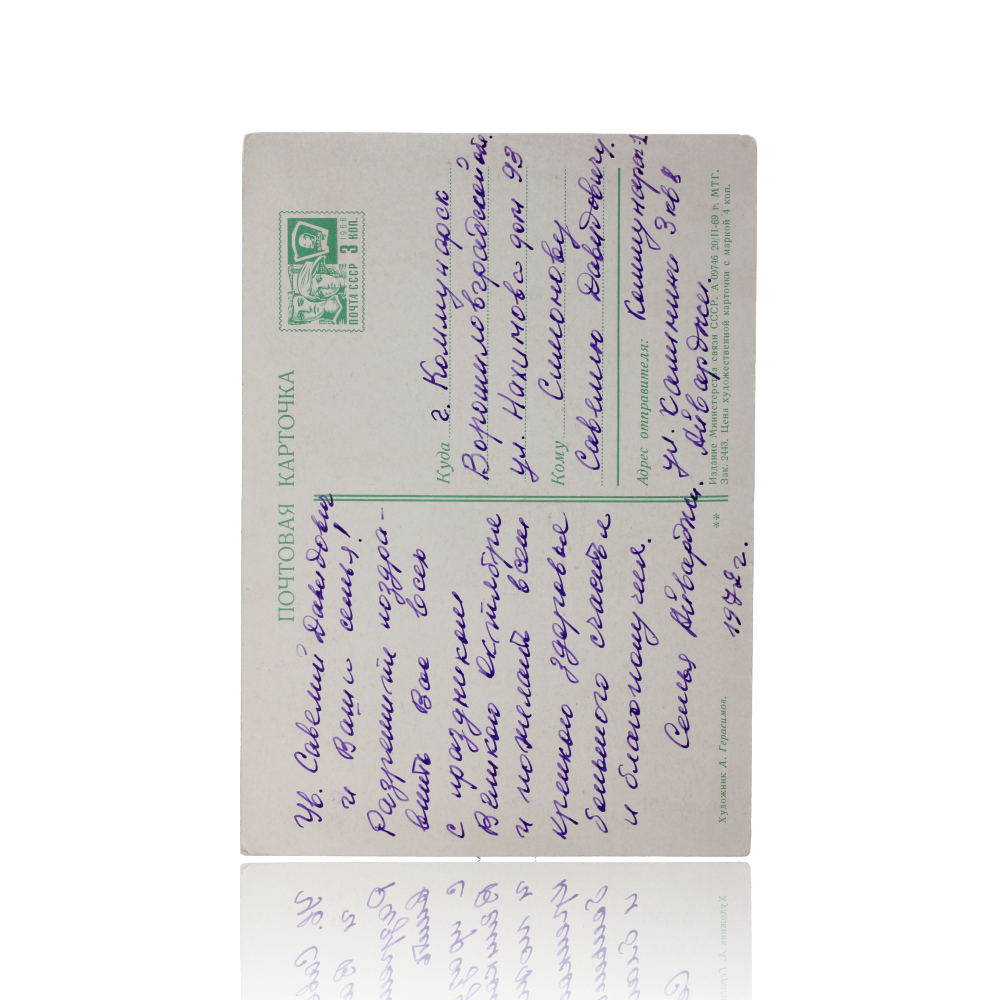 ПОЧТОВАЯ КАРТОЧКА
Ув. Савелий Давидович
и Ваши семья!
Разрешите поздра-
вить Вас всех
с праздником
Великого Октября
и пожелать всем
крепкого здоровья
большого счастья
и благополучия.
Семья Айварджи.
1972 г.
Художник А. Герасимов.
1966
3 КОП.
ПОЧТА СССР
Куда г. Коммунарск
Ворошиловградской обл.
ул. Нахимова дом 93
Кому Симонову
Савелию Давидовичу
Адрес отправителя: Коммунарск
ул. Калинина 3 кв 8
Айварджи.
Издание Министерства связи СССР. А 09746 20/II-69 г. МТГ.
Зак. 2443. Цена художественной карточки с маркой 4 коп.